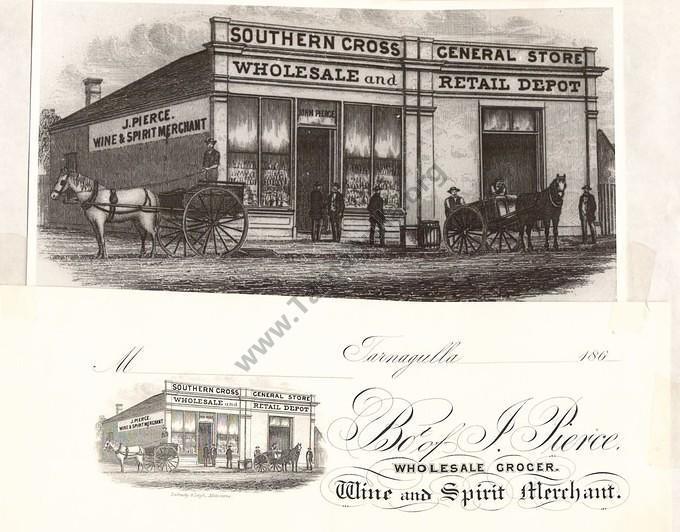 SOUTHERN CROSS GENERAL STORE
WHOLESALE and RETAIL DEPOT
JOHN PIERCE
J. PIERCE.
WINE & SPIRIT MERCHANT
M
Tarnagulla 186
SOUTHERN CROSS GENERAL STORE
WHOLESALE and RETAIL DEPOT
J. PIERCE.
WINE & SPIRIT MERCHANT
Bot. of J. Pierce.
WHOLESALE GROCER.
Wine and Spirit Merchant.